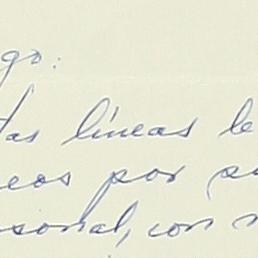 go:
tas líneas le
eos por su
sonal, con